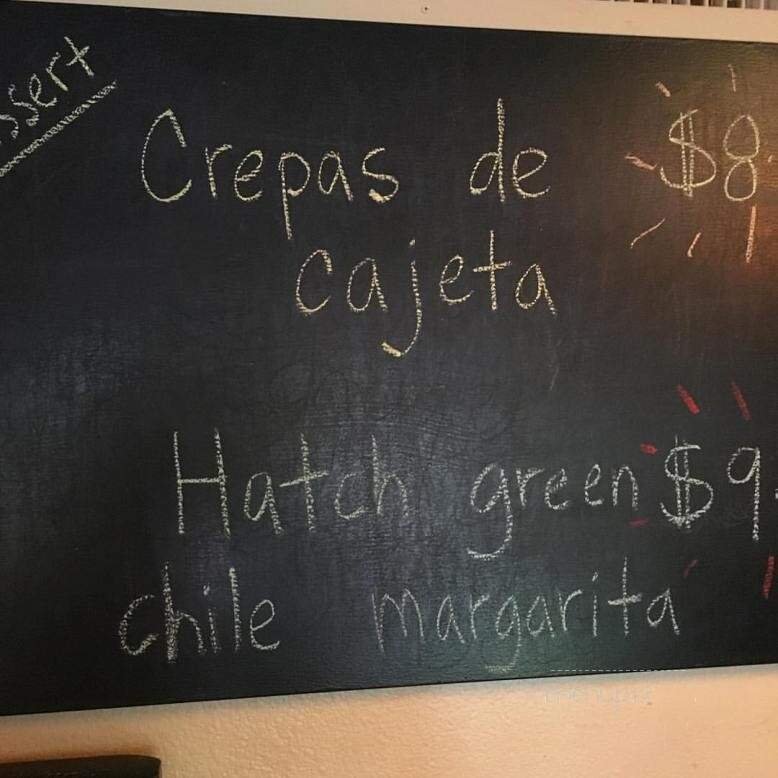 ssert
Crepas de $8
cajeta
Hatch green $9.
chile margarita